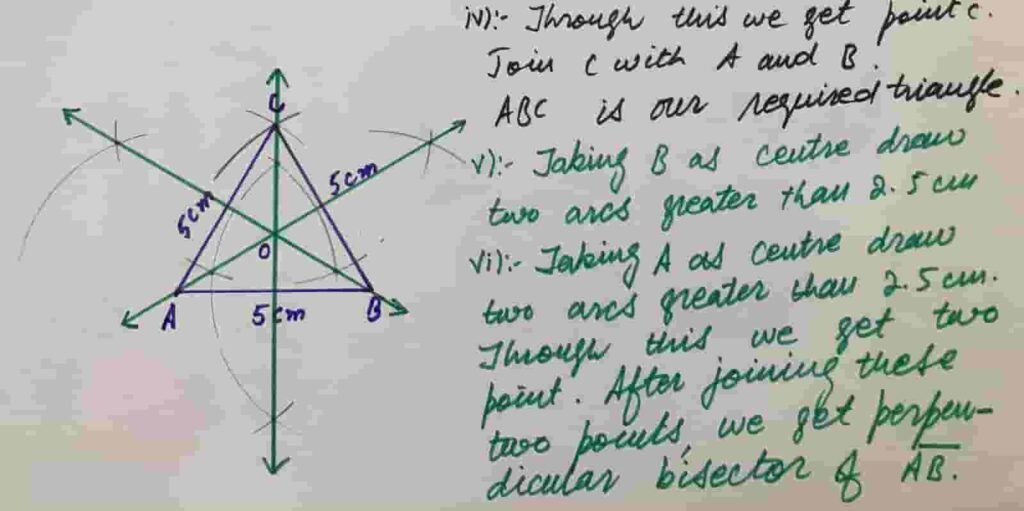 C
5 cm
5 cm
O
A
5 cm
B
iv):- Through this we get point c.
Join C with A and B.
ABC is our required triangle.
v):- Taking B as centre draw
two arcs greater than 2.5 cm
vi):- Taking A as centre draw
two arcs greater than 2.5 cm.
Through this we get two
point. After joining these
two points, we get perpen-
dicular bisector of AB.